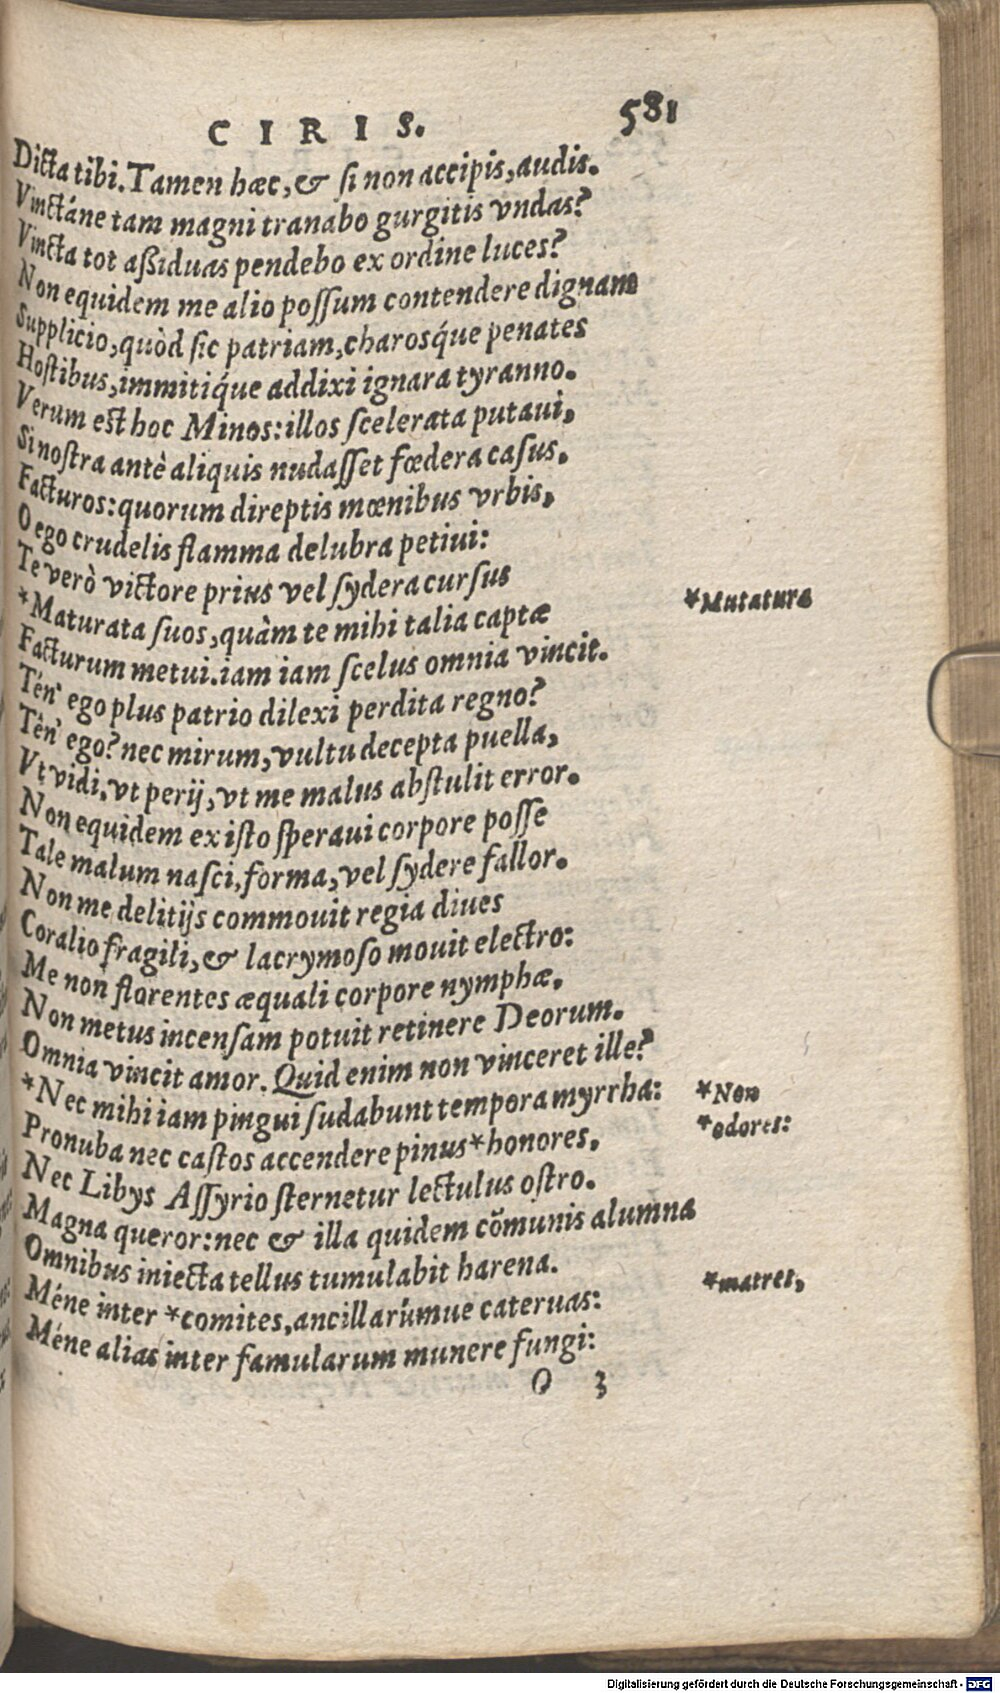 CIRIS. 581
Dicta tibi. Tamen hæc, & si non accipis, audis.
Vinctáne tam magni tranabo gurgitis vndas?
Vincta tot aßiduas pendebo ex ordine luces?
Non equidem me alio possum contendere dignam
Supplicio, quòd sic patriam, charosq́ue penates
Hostibus, immitiq́ue addixi ignara tyranno.
Verum est hoc Minos: illos scelerata putaui,
Si nostra antè aliquis nudasset fœdera casus,
Facturos: quorum direptis mœnibus vrbis,
O ego crudelis flamma delubra petiui:
Te verò victore prius vel sydera cursus
*Maturata suos, quàm te mihi talia captæ *Mutatura
Facturum metui. iam iam scelus omnia vincit.
Tén' ego plus patrio dilexi perdita regno?
Tên' ego? nec mirum, vultu decepta puella,
Vt vidi, vt perij, vt me malus abstulit error.
Non equidem ex isto speraui corpore posse
Tale malum nasci, forma, vel sydere fallor.
Non me delitijs commouit regia diues
Coralio fragili, & lacrymoso mouit electro:
Me non florentes æquali corpore nymphæ,
Non metus incensam potuit retinere Deorum.
Omnia vincit amor. Quid enim non vinceret ille?
*Nec mihi iam pingui sudabunt tempora myrrha: *Non
Pronuba nec castos accendere pinus *honores, *odores:
Nec Libys Assyrio sternetur lectulus ostro.
Magna queror: nec & illa quidem cõmunis alumna
Omnibus iniecta tellus tumulabit harena.
Méne inter *comites, ancillarúmue cateruas: *matres,
Méne alias inter famularum munere fungi:
O 3
Digitalisierung gefördert durch die Deutsche Forschungsgemeinschaft - DFG